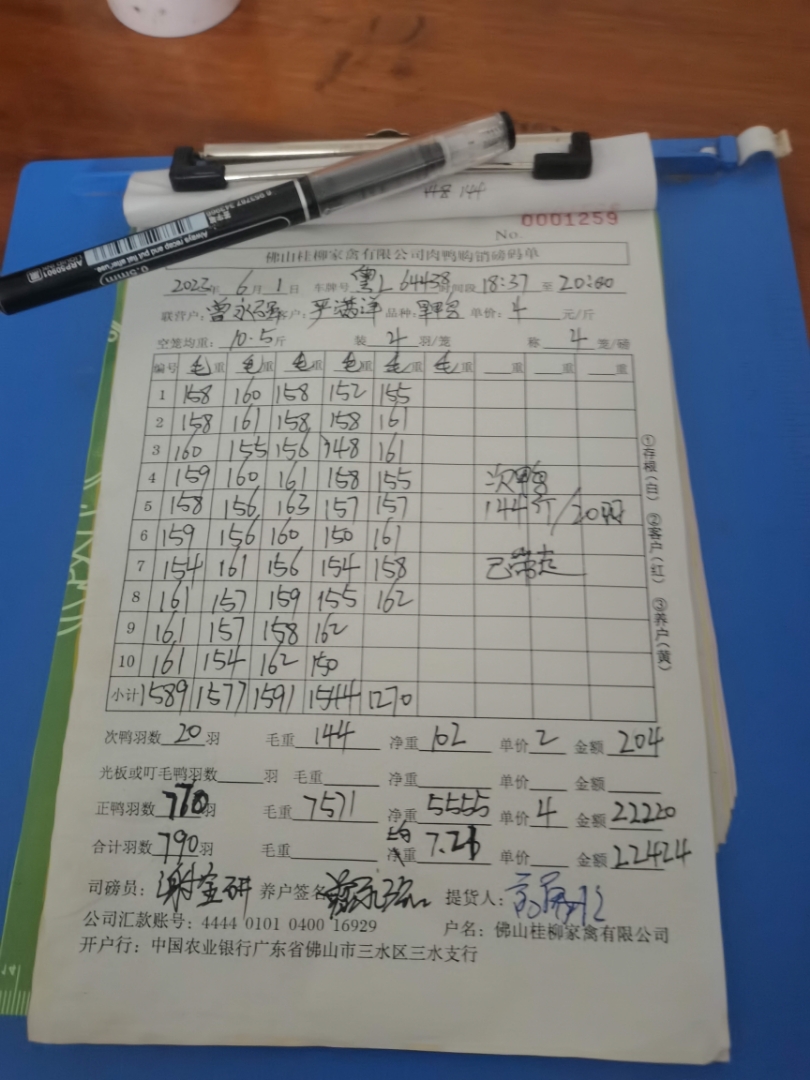 148 144
No. 0001259
佛山桂柳家禽有限公司肉鸭购销磅码单
2023年 6月 1日 车牌号 粤L 64438 时间段 18:37 至 20:00
联营户: 曾永强 客户: 严满洋 品种: 单价: 4 元/斤
空笼均重: 10.5斤 装 4 羽/笼 称 4 笼/磅
编号 毛重 毛重 毛重 毛重 毛重 毛重 重 重 重
1 158 160 158 152 155
2 158 161 158 158 161
3 160 155 156 148 161
4 159 160 161 158 155 次鸭
5 158 156 163 157 157 144斤/20羽
6 159 156 160 150 161
7 154 161 156 154 158 已带走
8 161 157 159 155 162
9 161 157 158 162
10 161 154 162 150
小计 1589 1577 1591 1544 1270
①存根(白) ②客户(红) ③养户(黄)
次鸭羽数 20 羽 毛重 144 净重 102 单价 2 金额 204
光板或叮毛鸭羽数 羽 毛重 净重 单价 金额
正鸭羽数 770 羽 毛重 7571 净重 5555 单价 4 金额 22220
合计羽数 790 羽 毛重 均重 7.21 单价 金额 22424
司磅员: 养户签名 提货人:
公司汇款账号: 4444 0101 0400 16929 户名: 佛山桂柳家禽有限公司
开户行: 中国农业银行广东省佛山市三水区三水支行
0.5mm
ARP50901
Always recap and put flat after use